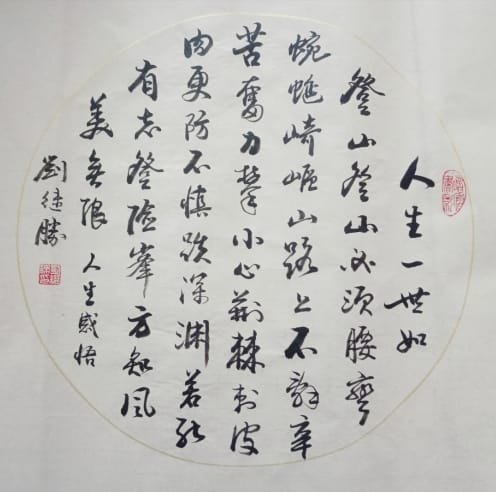 人生一世如
登山登山必须腰彎
蜿蜒崎岖山路上不辞辛
苦奮力攀小心荆棘刺皮
肉更防不慎跌深渊若能
有志登险峯方知风
美無限 人生感悟
劉继勝